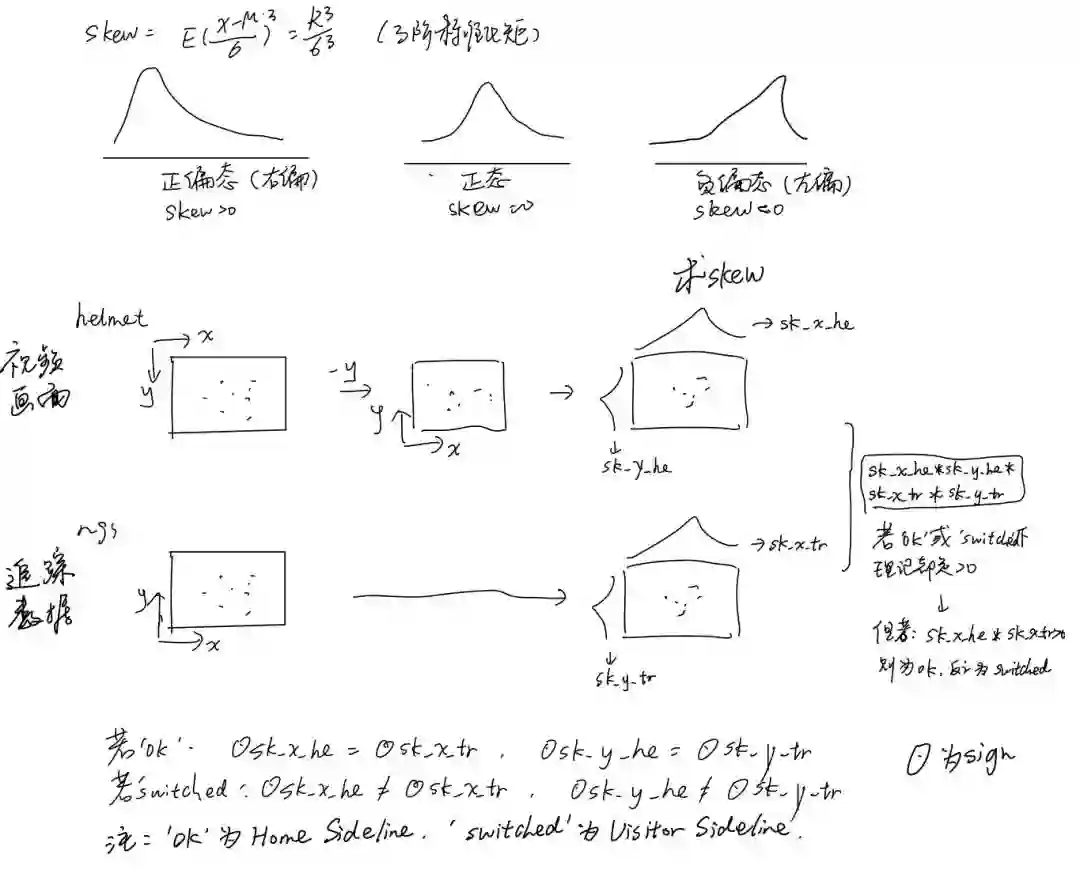 skew = E(\frac{x-μ}{6})^3 = \frac{k^3}{6^3} (3阶标准化矩)
正偏态(右偏) 正态 负偏态(左偏)
skew>0 skew=0 skew<0
求skew
helmet
x
y
视频
画面
-y
y
x
→sk_x_he
sk_y_he
ngs
追踪
数据
y
x
→sk_x_tr
sk_y_tr
sk_x_he*sk_y_he*
sk_x_tr*sk_y_tr
若'ok'或'switched'
>0
但若: sk_x_he*sk_x_tr>0
则为ok, 否则为switched
若'ok': ⊙sk_x_he = ⊙sk_x_tr, ⊙sk_y_he = ⊙sk_y_tr
若switched: ⊙sk_x_he ≠ ⊙sk_x_tr, ⊙sk_y_he ≠ ⊙sk_y_tr
⊙为sign
注: 'ok'为Home Sideline. 'switched'为Visitor Sideline.